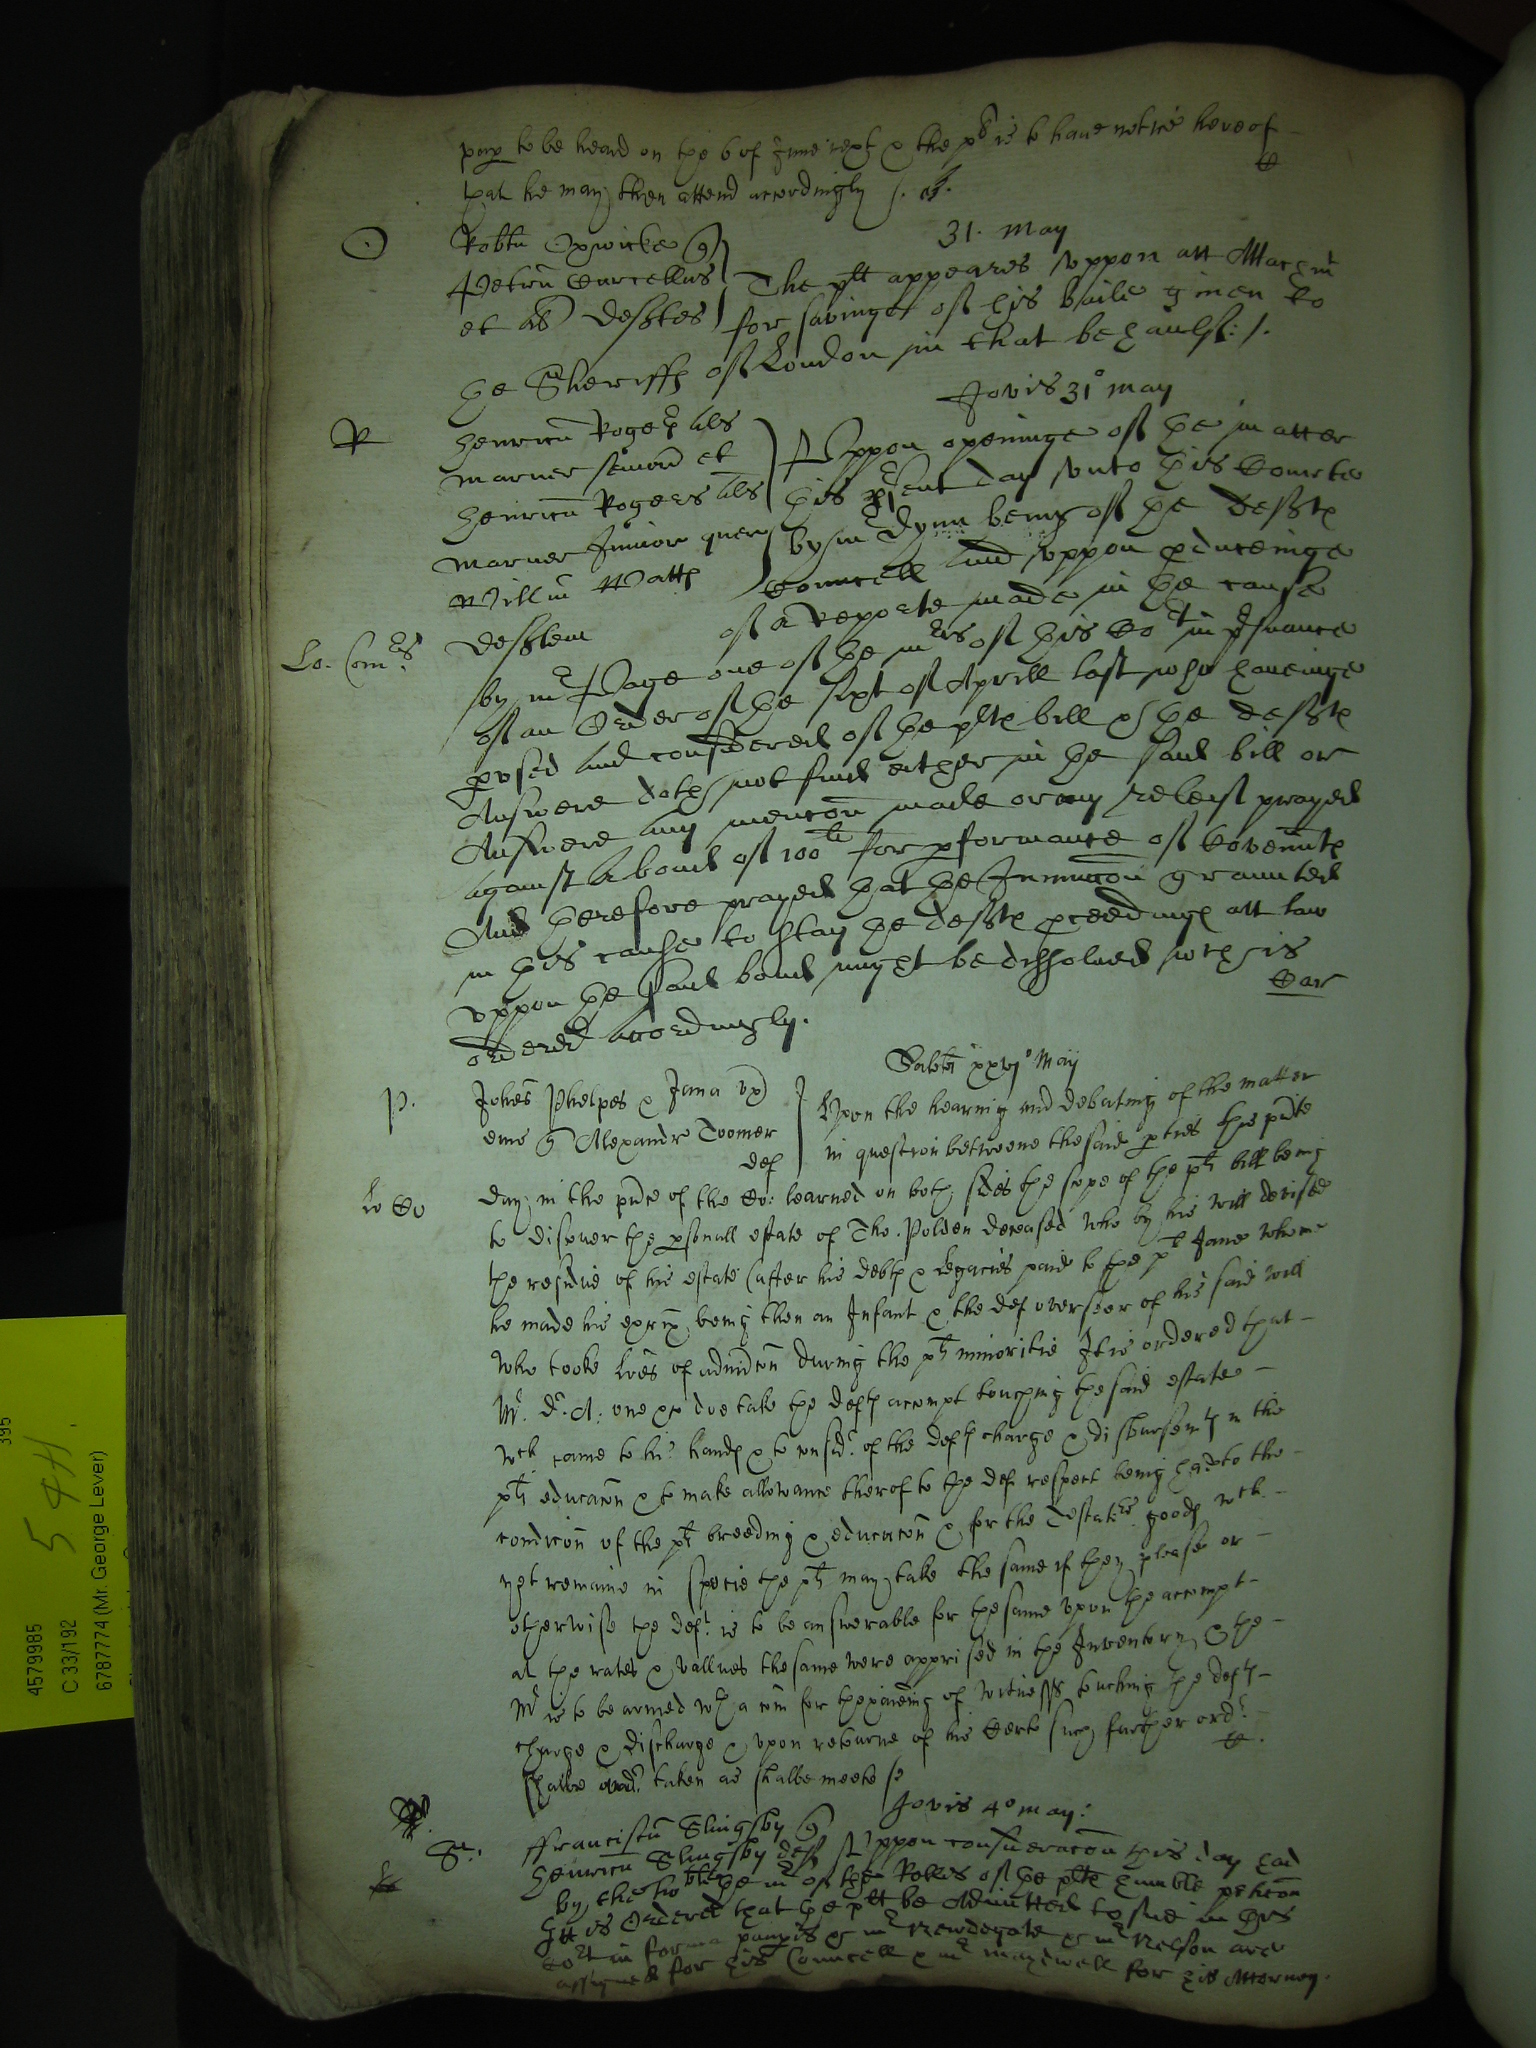 to be heard on the 6 of June next & the pl is to have notice hereof
that he may then attend accordingly
31. May
Robtu Oxwicke
Petru Curcellus
et als Deftes
The plt appeares uppon att Attachmt
for savinge of his baile given to
the Sheriffs of London in that behaulf:
Jovis 31° May
R
Henricu Rogers als
Marner Seniore et
Henricu Rogers als
Marner Junior quer
Willm Watts
Deftem
Uppon openinge of the matter
this pesent day unto this Courte
by Mr Dynn being of the Defts
Councell And uppon pduceinge
of a reporte made in the cause
Lo: Comrs
by Mr Page one of the Mrs of this Cort in psuance
of an Order of the sixt of Aprill last who haveinge
pused and considered of the plts bill & the defts
Answere doth not find either in the said bill or
Answere any mencon made or any releif prayed
against a bond of 100li for pformance of Covennts
And therefore prayed that the Iniunccon graunted
in this cause to stay the defts pceedings att law
uppon the said bond might be dissolved wch is
ordered accordingly.
Car
Sabbti xxvjo May
P.
Johes Phelpes & Jana ux
eius Alexandr Toomer
def
Upon the hearing and debating of the matter
in question betweene the said pties this pnte
Lo Co
day in the pnce of the Co: learned on both sides the scope of the plts bill being
to discover the psonall estate of Tho. Polden deceased who by his will devised
the residue of his estate (after his debts & legacies paid to the pl Jane whome
he made his exrix being then an Infant & the def overseer of his said will
who tooke lres of admcon during the pls minoritie It is ordered that
Mr. Dr. A: one &c doe take the defts accompt touching the said estate
wch came to his hands & to consider of the defts charge & disbursemts in the
pls educacon & to make allowance therof to the def respect being had to the
condicon of the pls breeding & educacon & for the Testators goods wch
yet remaine in specie the pls may take the same if they please or
otherwise the deft is to be answerable for the same upon the accompt
at the rates & vallues the same were apprised in the Inventory, & the
Mr is to be armed wth a com for thexaicing of witnesses touching the defts
charge & discharge & upon returne of his Certe such further ordr
shalbe taken as shalbe meete
Jovis 4o May:
Sr:
Franciscu Slingsby
Henricu Slingsby deft
Uppon consideracon this day had
by the hoble the Mr of the Rolles of the plts humble peticon
Itt is Ordered that the plt be Admitted to sue in this
Cort in forma paupis & Mr Newdegate & Mr Nelson are
assigned for his Councell & Mr Maydwell for his Attorney.
395
5 411.
4579985
C 33/192
6787774 (Mr. George Lever)